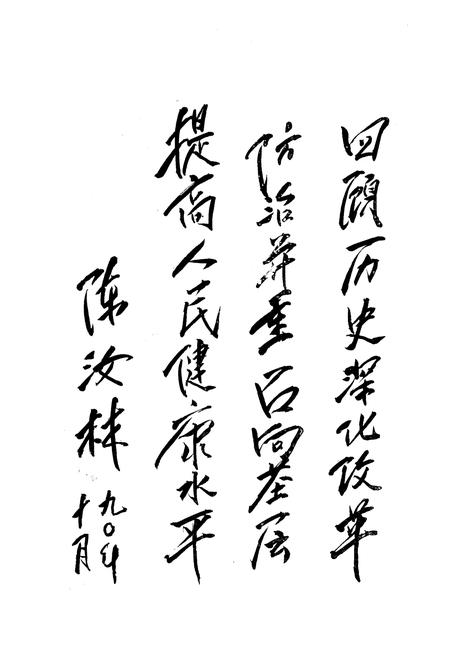 回顾历史深化改革
防治并重面向基层
提高人民健康水平
陈汝林
九〇年
十月